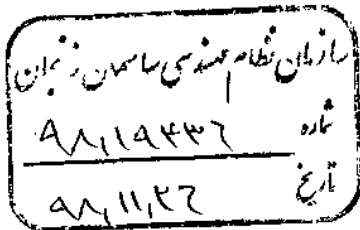 سازمان نظام مهندسی ساختمان زنجان
شماره ۹۸,۱۹۴۳۶
تاریخ ۹۸,۱۱,۲۶